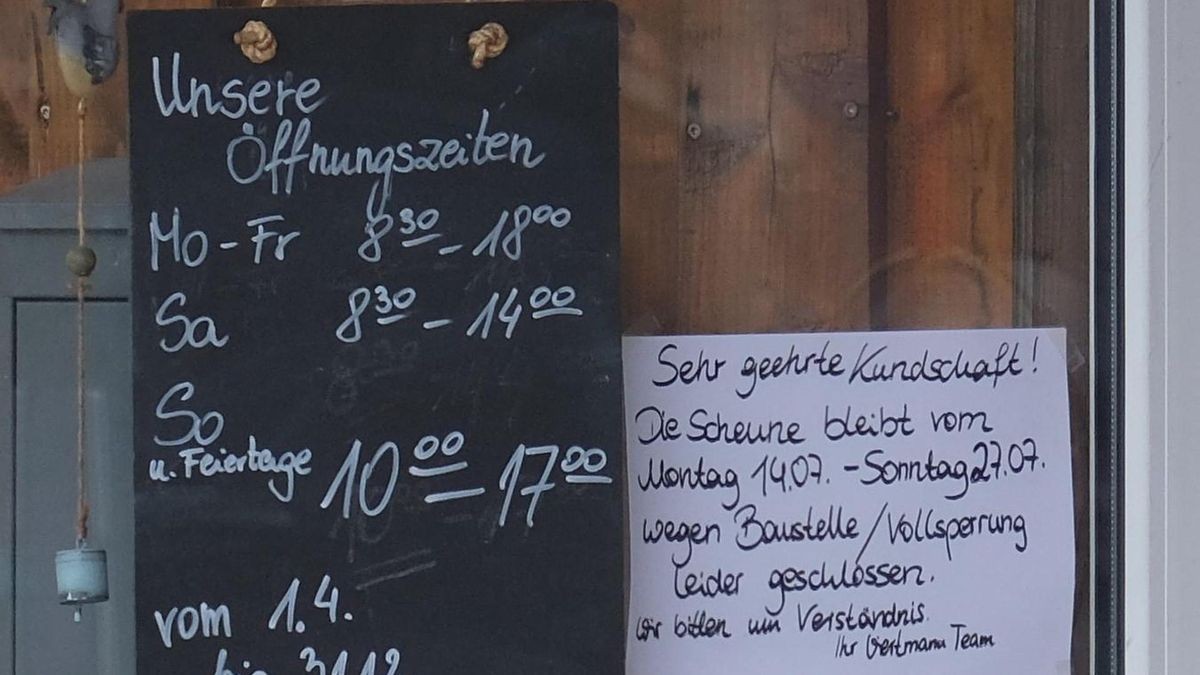 Unsere
Öffnungszeiten
Mo - Fr 8³⁰ - 18⁰⁰
Sa 8³⁰ - 14⁰⁰
So
u. Feiertage 10⁰⁰ - 17⁰⁰
vom 1.4.
bis 31.12
Sehr geehrte Kundschaft!
Die Scheune bleibt vom
Montag 14.07. - Sonntag 27.07.
wegen Baustelle / Vollsperrung
leider geschlossen.
Wir bitten um Verständnis.
Ihr Team